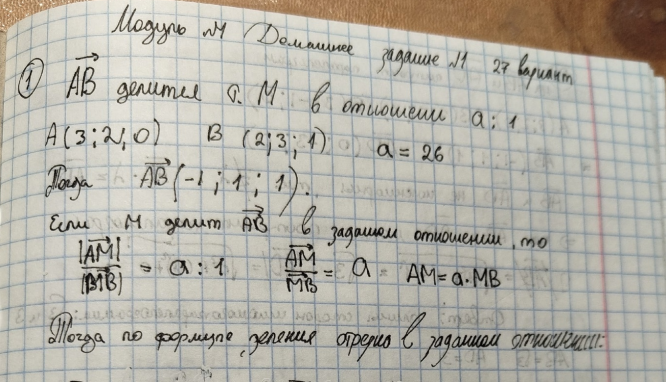 Модуль №1 Домашнее задание №1 27 вариант
① AB делится т. M в отношении a:1
A(3;2;0) B (2;3;1) a = 26
Тогда AB(-1; 1; 1).
Если M делит AB в заданном отношении, то
|AM|/|MB| = a:1 AM/MB = a AM=a·MB
Тогда по формуле деления отрезка в заданном отношении: